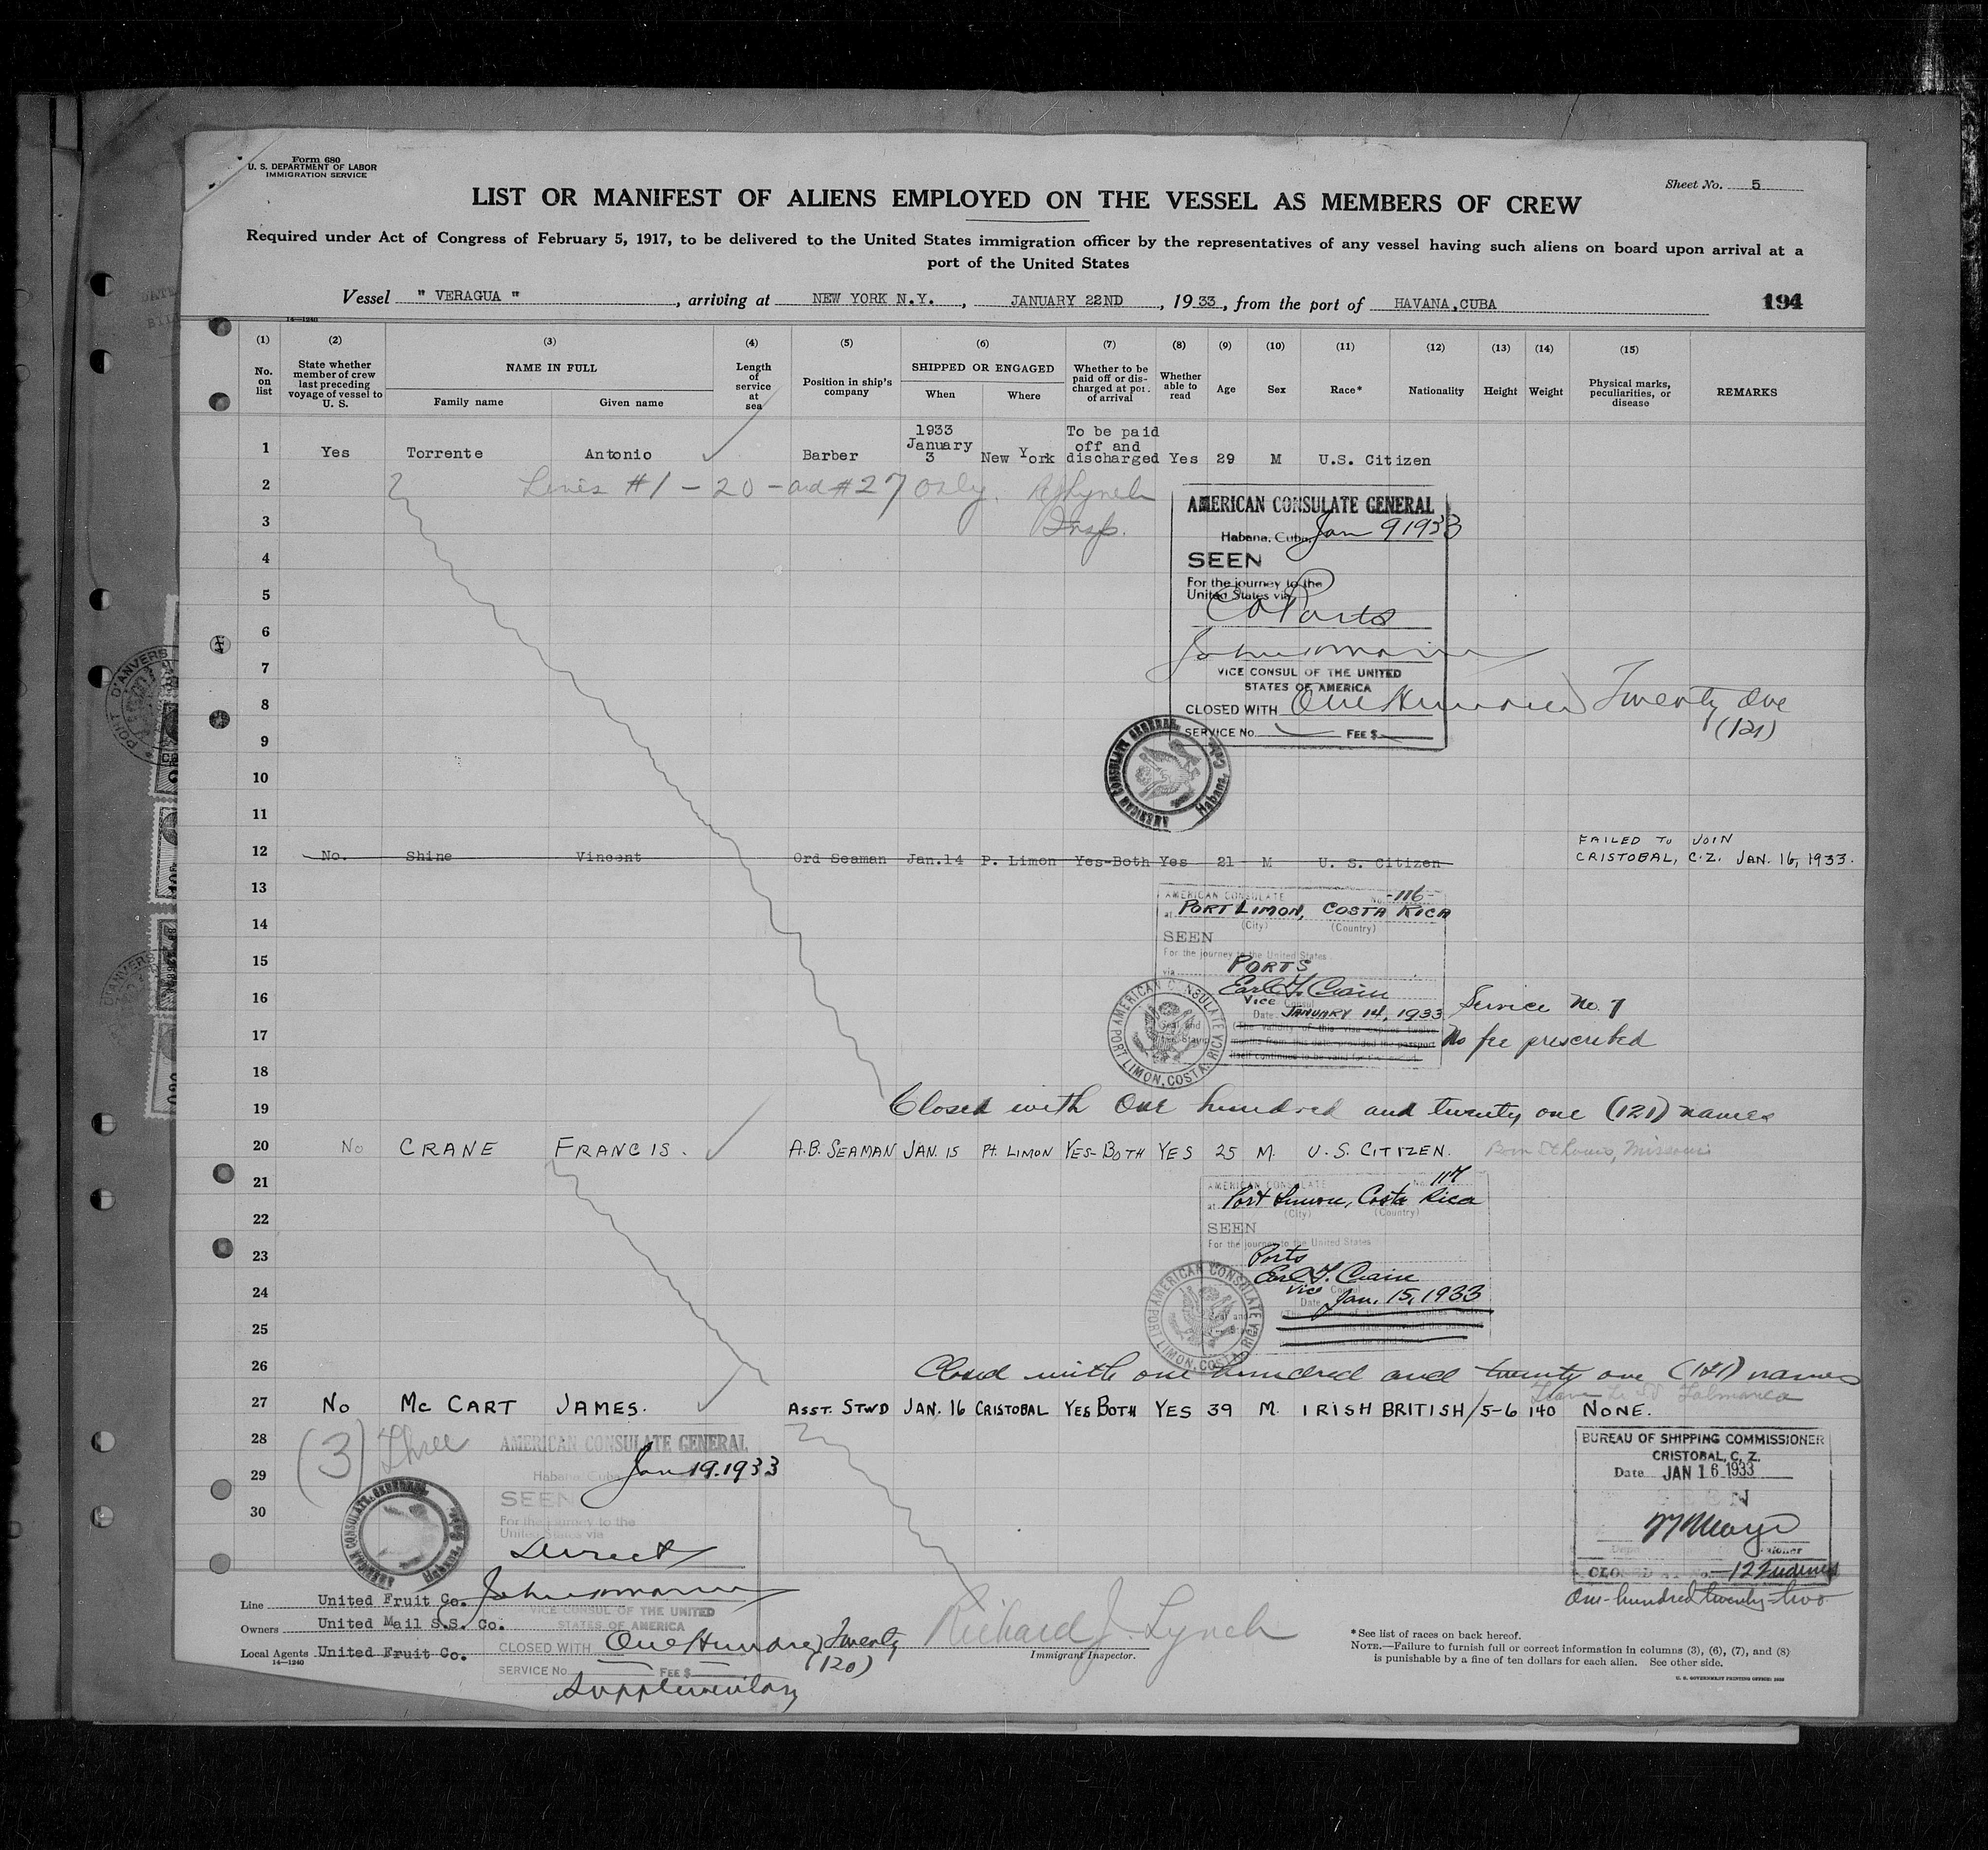 Form 680
U. S. DEPARTMENT OF LABOR
IMMIGRATION SERVICE
Sheet No. 5
LIST OR MANIFEST OF ALIENS EMPLOYED ON THE VESSEL AS MEMBERS OF CREW
Required under Act of Congress of February 5, 1917, to be delivered to the United States immigration officer by the representatives of any vessel having such aliens on board upon arrival at a
port of the United States
Vessel " VERAGUA " , arriving at NEW YORK N.Y. , JANUARY 22ND , 1933, from the port of HAVANA, CUBA 194
14—1240
(1) (2) (3) (4) (5) (6) (7) (8) (9) (10) (11) (12) (13) (14) (15)
No. on list
State whether member of crew last preceding voyage of vessel to U. S.
NAME IN FULL
Family name Given name
Length of service at sea
Position in ship's company
SHIPPED OR ENGAGED
When Where
Whether to be paid off or discharged at port of arrival
Whether able to read
Age Sex Race* Nationality Height Weight
Physical marks, peculiarities, or disease
REMARKS
1 Yes Torrente Antonio Barber 1933 January 3 New York To be paid off and discharged Yes 29 M U.S. Citizen
2 Lines #1 - 20 - and #27 only. RJLynch
3 Insp.
AMERICAN CONSULATE GENERAL
Habana, Cuba, Jan 9 1933
4 SEEN
For the journey to the
5 United States via
6 Ports
7 VICE CONSUL OF THE UNITED
STATES OF AMERICA
8 CLOSED WITH One Hundred Twenty One
(121)
9 SERVICE No. FEE $
AMERICAN CONSULATE GENERAL Habana, Cuba
10
11
12 No. Shine Vincent Ord Seaman Jan.14 P. Limon Yes-Both Yes 21 M U. S. Citizen
FAILED TO JOIN
CRISTOBAL, C.Z. JAN. 16, 1933.
13 AMERICAN CONSULATE No. -116-
at PORT LIMON, COSTA RICA
14 (City) (Country)
SEEN
15 For the journey to the United States
via PORTS
16 Earl T. Crain
Vice Consul
Service No. 7
Date JANUARY 14, 1933
17 (The validity of this visa expires twelve
months from this date, provided the passport
itself continued to be valid for that period.
No fee prescribed
AMERICAN CONSULATE PORT LIMON, COSTA RICA
18
19 Closed with One hundred and twenty one (121) names
20 No CRANE FRANCIS. A.B. SEAMAN JAN. 15 Pt. LIMON YES-BOTH YES 25 M. U.S. CITIZEN. Born St Louis, Missouri
21 AMERICAN CONSULATE No. 117
at Port Limon, Costa Rica
22 (City) (Country)
SEEN
For the journey to the United States
23 Ports
Earl T. Crain
24 Vice Consul
Date Jan. 15, 1933
25
AMERICAN CONSULATE PORT LIMON, COSTA RICA
26 Closed with one hundred and twenty one (121) names
27 No Mc CART JAMES. ASST. STWD JAN. 16 CRISTOBAL YES BOTH YES 39 M. IRISH BRITISH 5-6 140 NONE.
28 (3) Three
AMERICAN CONSULATE GENERAL
29 Habana, Cuba, Jan 19. 1933
SEEN
30 For the journey to the
United States via
Direct
AMERICAN CONSULATE GENERAL Habana, Cuba
BUREAU OF SHIPPING COMMISSIONER
CRISTOBAL, C. Z.
Date JAN 16 1933
SEEN
One-hundred twenty-two
Line United Fruit Co.
Owners United Mail S.S. Co.
Local Agents United Fruit Co.
14—1240
VICE CONSUL OF THE UNITED
STATES OF AMERICA
CLOSED WITH One Hundred Twenty
(120)
SERVICE No. FEE $
Supplementary
Richard J. Lynch
Immigrant Inspector.
*See list of races on back hereof.
NOTE.—Failure to furnish full or correct information in columns (3), (6), (7), and (8)
is punishable by a fine of ten dollars for each alien. See other side.